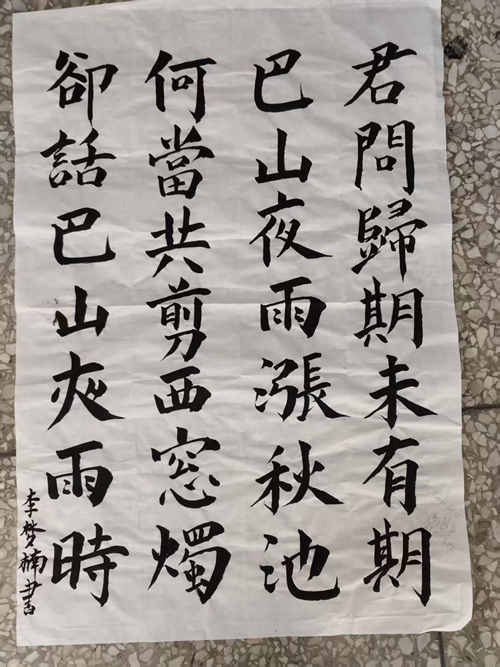 君問歸期未有期
巴山夜雨漲秋池
何當共剪西窓燭
卻話巴山夜雨時
李梦楠書